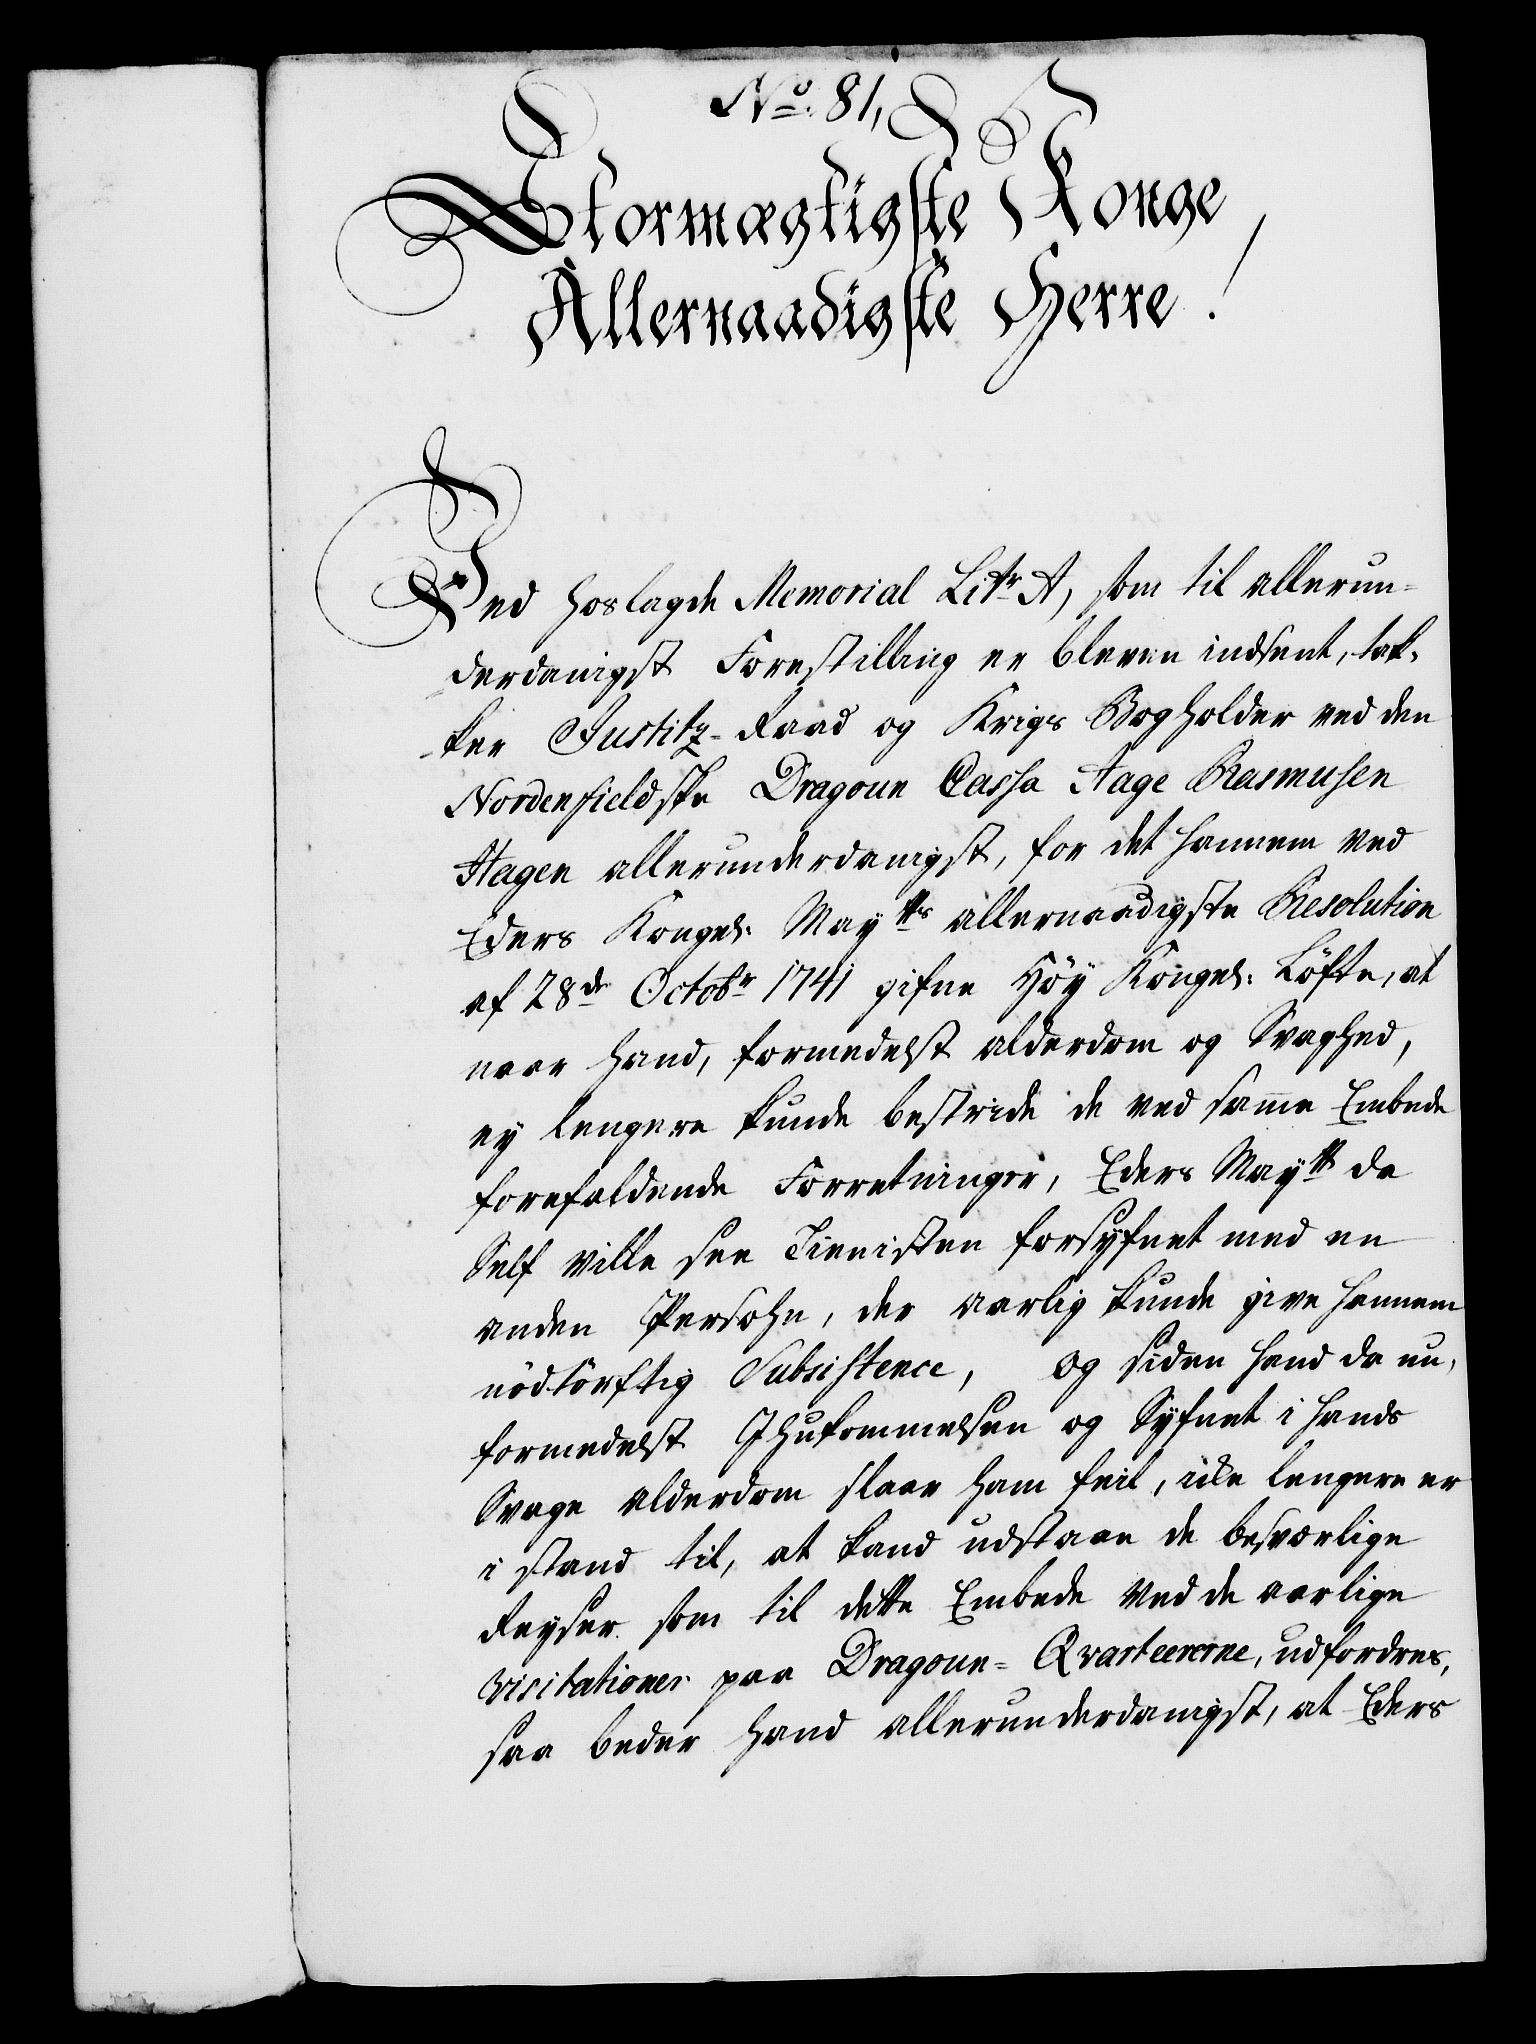 No: 81,
Stormægtigste Konge
Allernaadigste Herre!
Ved hoslagde Memorial Litr A, som til allerun-
derdanigst Forestilling er bleven indsent, tak-
ker Justitz-Raad og Krigs Bogholder ved den
Nordenfieldske Dragoun Cassa Aage Rasmusen
Hagen allerunderdanigst, for det hannem ved
Eders Kongel: Maytts allernaadigste Resolution
af 28de Octobr 1741 gifne Höy Kongel: Löfte, at
naar hand, formedelst alderdom og Svaghed,
ey lengere kunde bestride de ved samme Embede
forefaldende Forretninger, Eders Maytt da
Self ville see Tienisten forsyfnet med en
anden Persohn, der aarlig kunde give hannem
nödtörftig Subsistence, og siden hand da nu,
formedelst Ihukommelsen og Syfnet i hands
Svage alderdom slaar ham feil, icke lengere er
i stand til, at kand udstaae de besværlige
Reyser som til dette Embede ved de aarlige
visitationer paa Dragoun- Qvarteererne, udfordres,
saa beder hand allerunderdanigst, at Eders